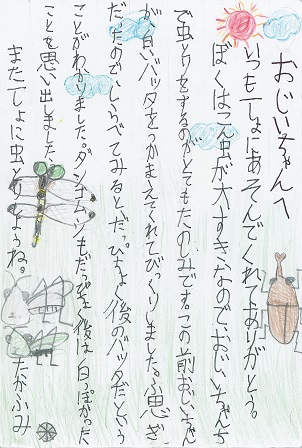 おじいちゃんへ
いつも一しょにあそんでくれてありがとう。
ぼくはこん虫が大すきなのでおじいちゃんち
で虫とりをするのがとてもたのしみです。この前おじいちゃん
が白いバッタをつかまえてくれてびっくりしました。ふ思ぎ
だったのでしらべてみるとだっぴちょく後のバッタだという
ことがわかりました。ダンゴムシもだっぴちょく後は白っぽかった
ことを思い出しました。
また一しょに虫とりしようね。
たかふみ